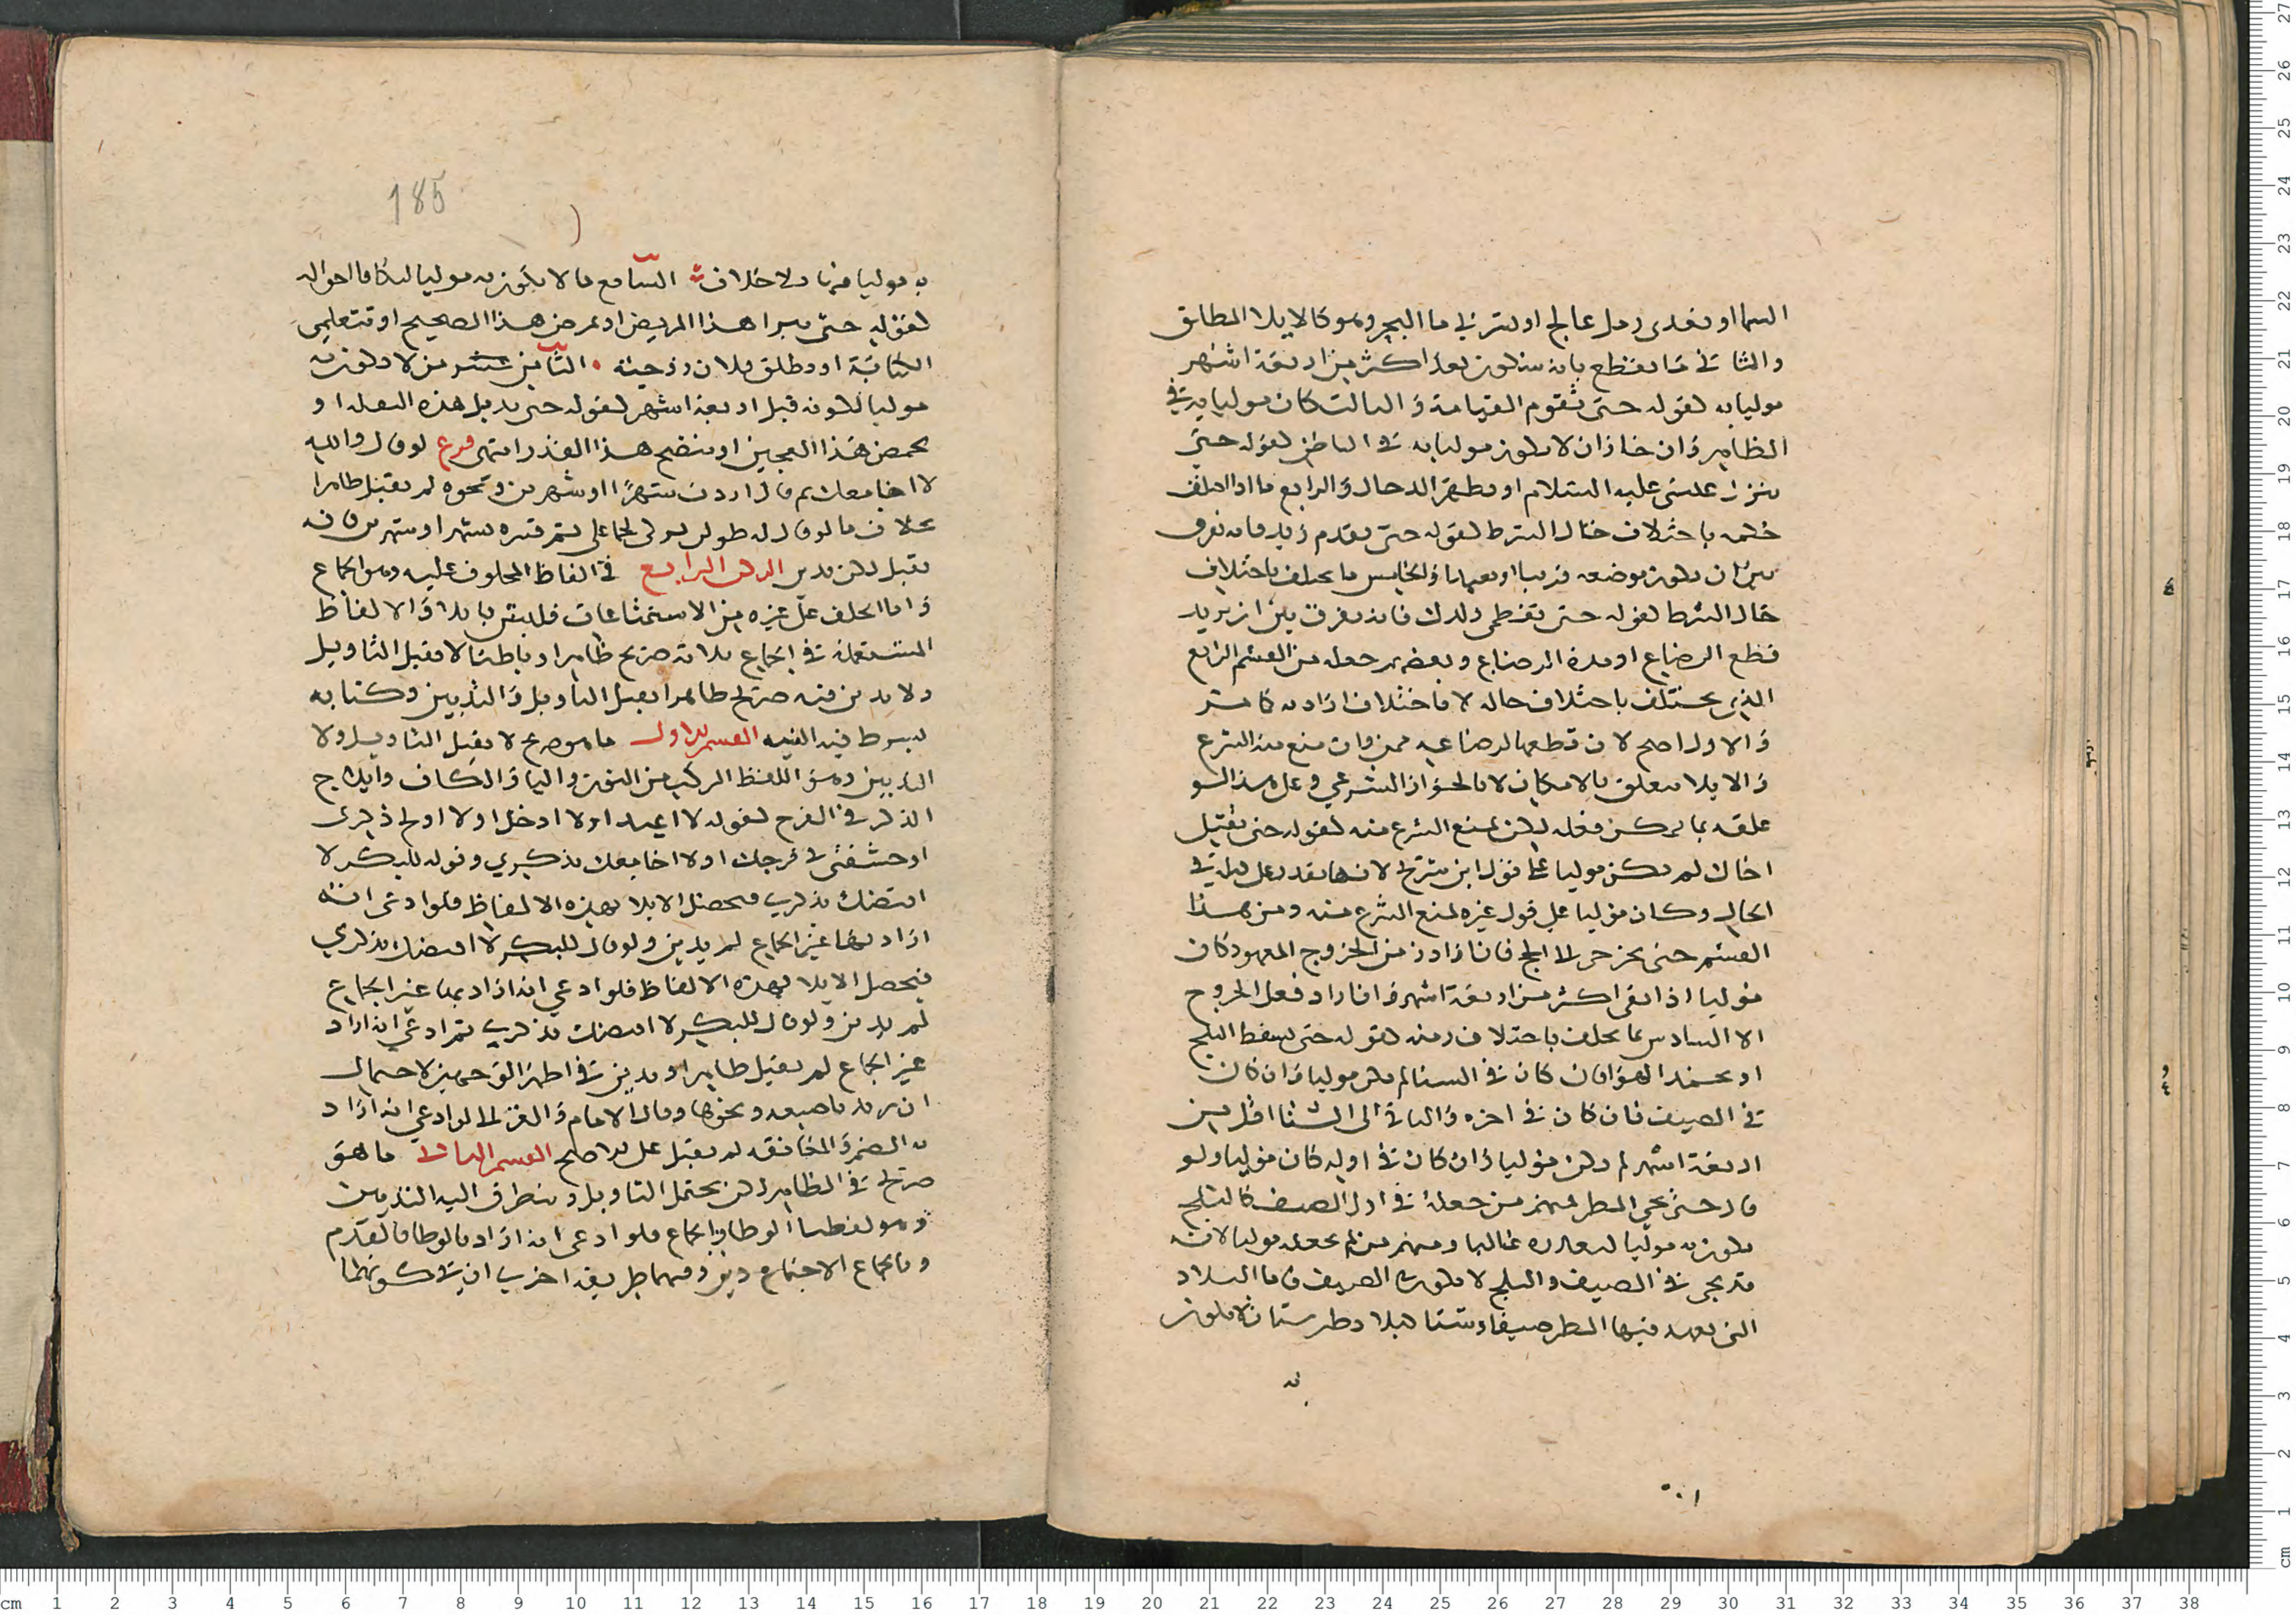 السما او تعدى رمل عالج او ىنزفي ما البحر وهو كالايلا المطلق
والثاني ما يقطع بانه سيكون بعد اكثر من اربعة اشهر
موليا به لقوله حتى تقوم القيامة والثالث كان موليا به في
الظاهر وان جاز ان لا يكون موليا به في الباطن لقوله حتى
ينزل عيسى عليه السلام او يظهر الدجال والرابع ما اذا اختلف
حكمه باختلاف حال الشرط لقوله حتى يقدم زيد فانه يفرق
بين ان يكون موضعه قريبا او بعيدا والخامس ما يختلف باختلاف
حال الشرط لقوله حتى تفطمي ولدك فانه يفرق بين ان يريد
قطع الرضاع او مدة الرضاع وبعضهم جعله من القسم الرابع
الذي يختلف باختلاف حاله لا باختلاف ارادته كما مر
والاول اصح لان قطعها لرضاعه ممكن وان منع منه الشرع
والايلا يتعلق بالامكان لا بالجواز الشرعي وعلى هذا لو
علقه بما يمكن فعله لكن لمنع الشرع منه لقوله حتى تقتيل
اخاك لم يكن موليا على قول ابن سريج لانها تقدر على في
الحال وكان موليا على قول غيره لمنع الشرع منه ومن هذا
القسم حتى يخرج الى الحج فان اراد زمن الخروج المعهود كان
موليا اذا بقي اكثر من اربعة اشهر وان اراد فعل الخروج
الا السادس ما يختلف باختلاف زمنه لقوله حتى يسقط الثلج
او يحمد الهوا فان كان في الشتا لم يكن موليا وان كان
في الصيف فان كان في اخره والباقي الى الشتا اقل من
اربعة اشهر لم يكن موليا وان كان في اوله كان موليا ولو
قال حتى يجي المطر فمنهم من جعله في اول الصيف كالثلج
يكون به موليا لتعذره غالبا ومنهم من لم يجعله موليا لانه
قد يجي في الصيف والثلج لا يكون في الصيف فاما البلاد
التي يعهد فيها المطر صيفا وشتا كبلاد طبرستان لا يكون
به
185
به موليا فيها ولا خلاف السابع ما لا يكون به موليا لتكافا احواله
لقوله حتى يبرا هذا المريض او يمرض هذا الصحيح او تتعلمي
الكتابة او يطلق فلان زوجته الثامن عشر من لا يكون به
موليا لكونه قبل اربعة اشهر لقوله حتى يدبل هذه البقلة او
يحمض هذا العجين او ينضج هذا القدر انتهى فرع لو قال والله
لا اجامعك ثم قال اردت شهرا او شهرين ونحوه لم يقبل ظاهرا
بخلاف ما لو قال له طولس لولي لجماعى ثم فسره بشهر او شهرين فانه
يقبل لكن يدين الركن الرابع في الفاظ المحلوف عليه وهو الجماع
واما الحلف على غيره من الاستمتاعات فليس بايلا والالفاظ
المستعملة في الجماع ثلاثة صريح ظاهرا وباطنا لا يقبل التاويل
ولا يدين فيه صريح ظاهرا يقبل التاويل والتديين وكناية
يشترط فيه النية القسم الاول ما هو صريح لا يقبل التاويل ولا
التديين وهو اللفظ المركب من النون واليا والكاف وايلاج
الذكر في الفرج لقوله لا اغيب او لا ادخل او لا اولج ذكري
او حشفتي في فرجك او لا اجامعك بذكري وقوله للبكر لا
افتضك بذكري فيحصل الايلا بهذه الالفاظ فلو ادعى انه
اراد بها غير الجماع لم يدين ولو قال للبكر لا افتضك بذكري
فيحصل الايلا بهذه الالفاظ فلو ادعي انه اراد بها غير الجماع
لم يدين ولو قال للبكر لا افتضك بذكري ثم ادعى انه اراد
غير الجماع لم يقبل ظاهرا ويدين في اظهر الوجهين لاحتمال
ان يريد باصبعه ونحوها وقال الامام والغزالي لو ادعي انه اراد
به الضم والمخانقه لم يقبل على الاصح القسم الثاني ما هو
صريح في الظاهر لكن يحتمل التاويل ويتطرق اليه التديين
وهو لفظتا الوطا والجماع فلو ادعى انه اراد بالوطا بالقدم
وبالجماع الاجتماع دين وفيهما طريقه اخري ان في كونهما